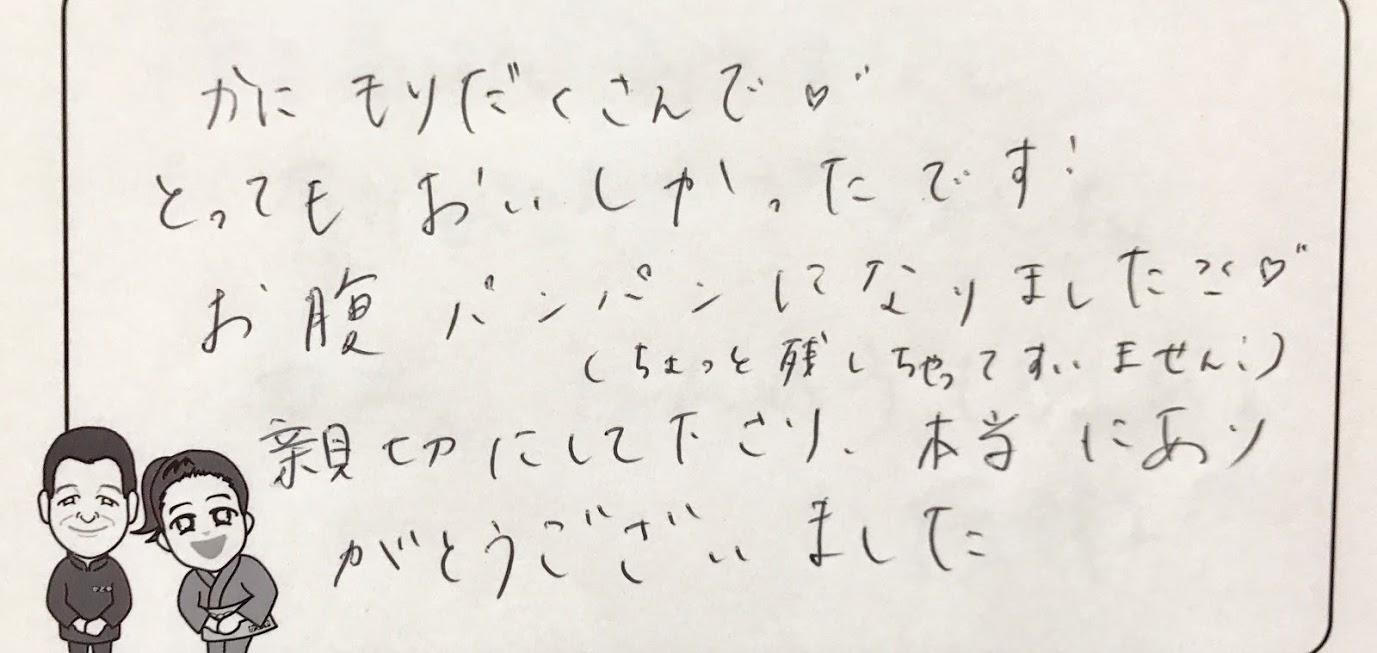 かにもりだくさんで♡
とってもおいしかったです!
お腹パンパンになりました♡
(ちょっと残しちゃってすいません!)
親切にして下さり、本当にあり
がとうございました